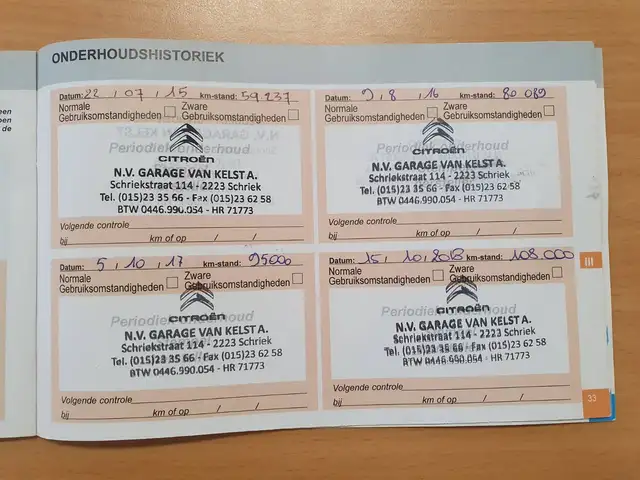 ONDERHOUDSHISTORIEK
Datum: 22 / 07 / 15 km-stand: 59.237
Normale Gebruiksomstandigheden
Zware Gebruiksomstandigheden
Periodiek onderhoud
CITROËN
N.V. GARAGE VAN KELST A.
Schriekstraat 114 - 2223 Schriek
Tel. (015)23 35 66 - Fax (015)23 62 58
BTW 0446.990.054 - HR 71773
Volgende controle
bij km of op / /
Datum: 9 / 8 / 16 km-stand: 80 089
Normale Gebruiksomstandigheden
Zware Gebruiksomstandigheden
Periodiek onderhoud
CITROËN
N.V. GARAGE VAN KELST A.
Schriekstraat 114 - 2223 Schriek
Tel. (015)23 35 66 - Fax (015)23 62 58
BTW 0446.990.054 - HR 71773
Volgende controle
bij km of op / /
Datum: 5 / 10 / 17 km-stand: 95000
Normale Gebruiksomstandigheden
Zware Gebruiksomstandigheden
Periodiek onderhoud
CITROËN
N.V. GARAGE VAN KELST A.
Schriekstraat 114 - 2223 Schriek
Tel. (015)23 35 66 - Fax (015)23 62 58
BTW 0446.990.054 - HR 71773
Volgende controle
bij km of op / /
Datum: 15 / 10 / km-stand: 108.000
Normale Gebruiksomstandigheden
Zware Gebruiksomstandigheden
Periodiek onderhoud
CITROËN
N.V. GARAGE VAN KELST A.
Schriekstraat 114 - 2223 Schriek
Tel. (015)23 35 66 - Fax (015)23 62 58
BTW 0446.990.054 - HR 71773
Volgende controle
bij km of op / /
III
33